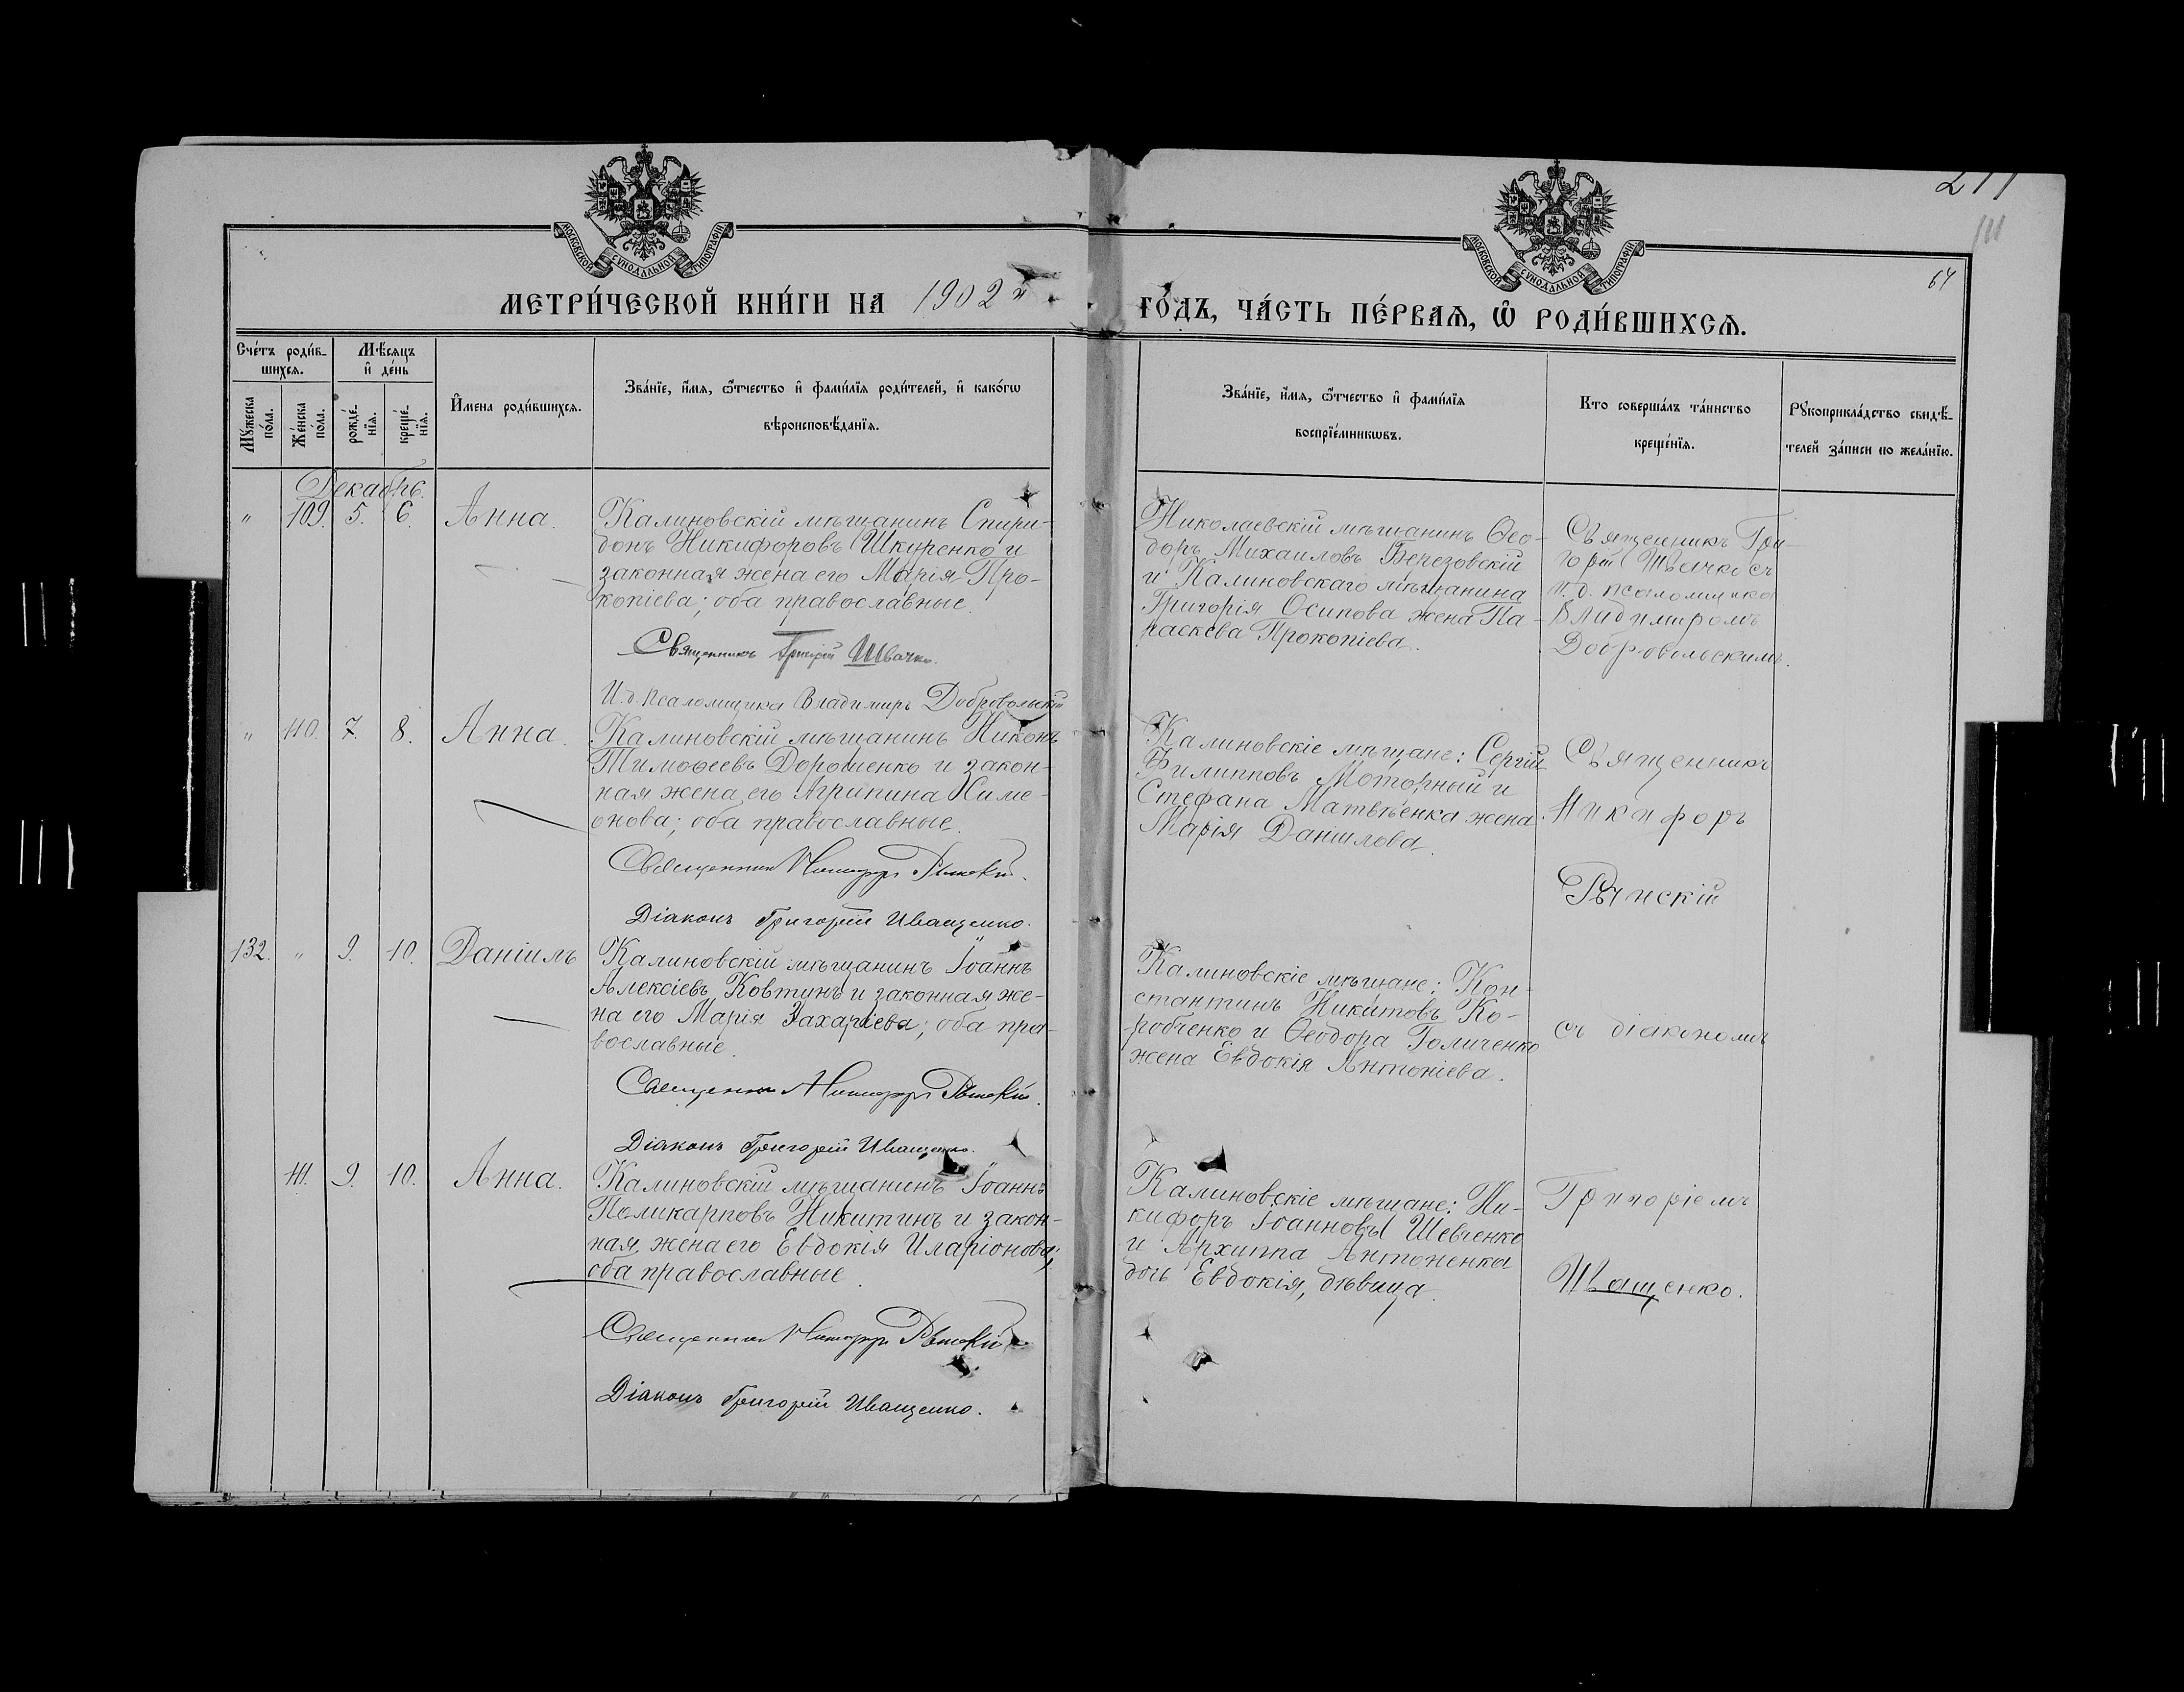 МОСКОВСКОЙ СѴНОДАЛЬНОЙ ТИПОГРАФІИ
МОСКОВСКОЙ СѴНОДАЛЬНОЙ ТИПОГРАФІИ
111
64
МЕТРИ́ЧЕСКОЙ КНИ́ГИ НА 1902й ГО́ДЪ, ЧА́СТЬ ПЕ́РВАѦ, Ѡ҆ РОДИ́ВШИХСѦ.
Сче́тъ роди́в-
шихсѧ.
Мꙋ́жеска по́ла.
Же́нска по́ла.
Мѣ́сѧцъ и҆ де́нь
рожде́-
нїѧ.
креще́-
нїѧ.
И҆мена роди́вшихсѧ.
Зва́нїе, и҆́мѧ, ѻ҆́тчество и҆ фами́лїѧ роди́телей, и҆ како́гѡ
вѣроисповѣ́данїѧ.
Зва́нїе, и҆́мѧ, ѻ҆́тчество и҆ фами́лїѧ
воспрїе́мникѡвъ.
Кто соверша́лъ та́инство
креще́нїѧ.
Рꙋкоприкла́дство свидѣ́-
телей за́писи по жела́нїю.
Декабрь.
" 109. 5. 6. Анна.
Калиновскій мѣщанинъ Спири-
донъ Никифоровъ Шкуренко и
законная жена его Марія Про-
копіева; оба православные.
Священникъ Григорій Швачко.
И. д. псаломщика Владимиръ Добровольскій
Николаевскій мѣщанинъ Ѳео-
доръ Михаиловъ Березовскій
и Калиновскаго мѣщанина
Григорія Осипова жена Па-
раскева Прокопіева.
Священникъ Гри-
горій Швачко съ
и. д. псаломщика
Владимиромъ
Добровольскимъ.
" 110. 7. 8. Анна.
Калиновскій мѣщанинъ Никонъ
Тимоѳеевъ Дорошенко и закон-
ная жена его Агрипина Симе-
онова; оба православные.
Священникъ Никифоръ
Діаконъ Григорій Иващенко.
Калиновскіе мѣщане: Сергій
Филипповъ Моторный и
Стефана Матвѣенка жена
Марія Даніилова.
Священникъ
Никифоръ
132. " 9. 10. Даніилъ
Калиновскій мѣщанинъ Іоаннъ
Алексіевъ Ковтунъ и законная же-
на его Марія Захаріева; оба пра-
вославные.
Священникъ Никифоръ
Діаконъ Григорій Иващенко.
Калиновскіе мѣщане: Кон-
стантинъ Никитовъ Ко-
робченко и Ѳеодора Голиченко
жена Евдокія Антоніева.
съ діакономъ
111. 9. 10. Анна.
Калиновскій мѣщанинъ Іоаннъ
Поликарповъ Никитинъ и закон-
ная жена его Евдокія Иларіонова;
оба православные.
Священникъ Никифоръ
Діаконъ Григорій Иващенко.
Калиновскіе мѣщане: Ни-
кифоръ Іоанновъ Шевченко
и Архиппа Антоненка
дочь Евдокія, дѣвица.
Григоріемъ
Иващенко.